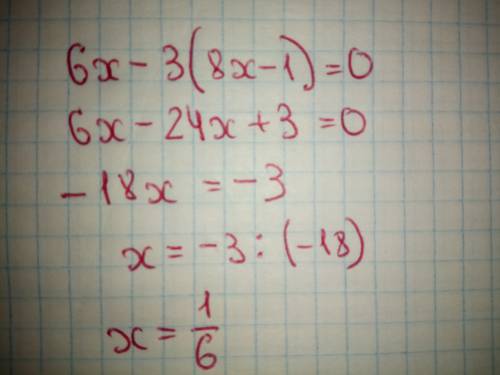 6x - 3(8x-1) = 0
6x - 24x + 3 = 0
-18x = -3
x = -3 : (-18)
x = 1/6